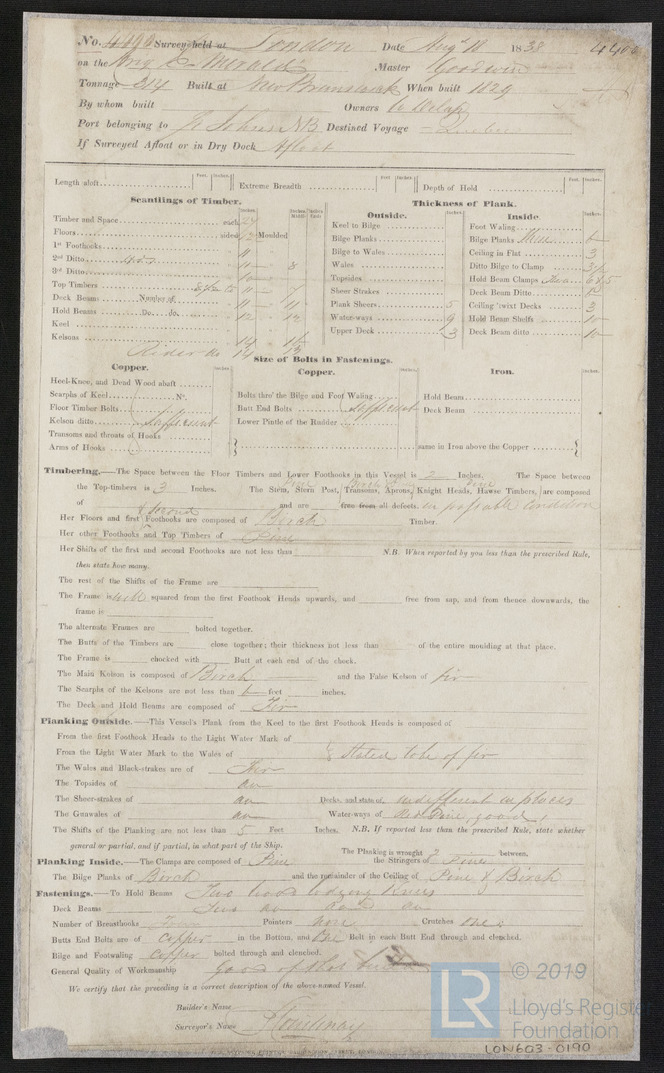 No. Survey held at London Date Augt 18 1838
on the Brig Master Goodwin
Tonnage 314 Built at New Brunswick When built 1829
By whom built Owners
Port belonging to St Johns NB Destined Voyage
If Surveyed Afloat or in Dry Dock Afloat
Feet. Inches. Feet. Inches. Feet. Inches.
Length aloft Extreme Breadth Depth of Hold
Scantlings of Timber. Thickness of Plank.
Outside. Inside.
Timber and Space each
Floors sided 12 Moulded
1st Foothooks 11
2nd Ditto 8
3rd Ditto 10
Top Timbers 7
Deck Beams Number of 11
Hold Beams Do. do. 12
Keel
Kelsons 14
Rider do 14
Keel to Bilge
Bilge Planks
Bilge to Wales
Wales
Topsides
Sheer Strakes
Plank Sheers 5
Water-ways 9
Upper Deck 3
Foot Waling
Bilge Planks 6
Ceiling in Flat 3
Ditto Bilge to Clamp
Hold Beam Clamps 6 & 5
Deck Beam Ditto
Ceiling 'twixt Decks 3
Hold Beam Shelfs 10
Deck Beam ditto 10
Size of Bolts in Fastenings.
Copper. Copper. Iron.
Heel-Knee, and Dead Wood abaft
Scarphs of Keel No.
Floor Timber Bolts
Kelson ditto Sufficient
Transoms and throats of Hooks
Arms of Hooks
Bolts thro' the Bilge and Foot Waling
Butt End Bolts Sufficient
Lower Pintle of the Rudder
Hold Beam
Deck Beam
same in Iron above the Copper
Timbering.—The Space between the Floor Timbers and Lower Foothooks in this Vessel is 2 Inches. The Space between
the Top-timbers is 3 Inches. The Stem, Stern Post, Transoms, Aprons, Knight Heads, Hawse Timbers, are composed
of and are free from all defects. in passable condition
Her Floors and first Foothooks are composed of Birch Timber.
Her other Foothooks and Top Timbers of Pine
Her Shifts of the first and second Foothooks are not less than N.B. When reported by you less than the prescribed Rule,
then state how many.
The rest of the Shifts of the Frame are
The Frame is well squared from the first Foothook Heads upwards, and free from sap, and from thence downwards, the
frame is
The alternate Frames are bolted together.
The Butts of the Timbers are close together; their thickness not less than of the entire moulding at that place.
The Frame is chocked with Butt at each end of the chock.
The Main Kelson is composed of Birch and the False Kelson of fir
The Scarphs of the Kelsons are not less than 6 feet inches.
The Deck and Hold Beams are composed of Fir
Planking Outside.—This Vessel's Plank from the Keel to the first Foothook Heads is composed of
From the first Foothook Heads to the Light Water Mark of
From the Light Water Mark to the Wales of Stated to be of fir
The Wales and Black-strakes are of Fir
The Topsides of
The Sheer-strakes of Decks, and state of, indifferent in places
The Gunwales of Water-ways of Red Pine, good
The Shifts of the Planking are not less than 5 Feet Inches. N.B. If reported less than the prescribed Rule, state whether
general or partial, and if partial, in what part of the Ship. The Planking is wrought 2 between.
Planking Inside.—The Clamps are composed of Pine the Stringers of Pine
The Bilge Planks of Birch and the remainder of the Ceiling of Pine & Birch
Fastenings.—To Hold Beams Two wood lodging Knees
Deck Beams Two
Number of Breasthooks Pointers None Crutches One
Butts End Bolts are of Copper in the Bottom, and One Bolt in each Butt End through and clenched.
Bilge and Footwaling Copper bolted through and clenched.
General Quality of Workmanship Good of that
We certify that the preceding is a correct description of the above-named Vessel.
Builder's Name
Surveyor's Name Courtenay
LR © 2019
Lloyd's Register
Foundation
LON603-0190